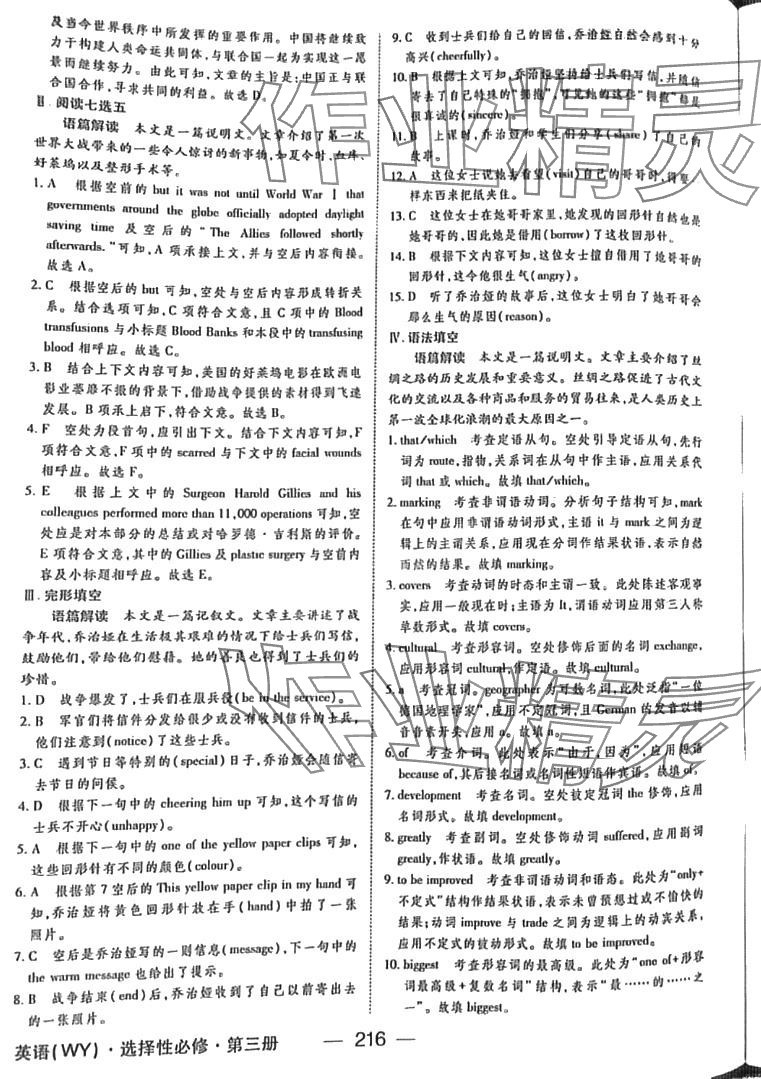 及当今世界秩序中所发挥的重要作用。中国将继续致
力于构建人类命运共同体，与联合国一起为实现这一愿
景而继续努力。由此可知，文章的主旨是：中国正与联
合国合作，寻求共同的利益。故选 D。
Ⅱ. 阅读七选五
语篇解读 本文是一篇说明文。文章介绍了第一次
世界大战带来的一些令人惊讶的新事物，如夏令时，血库，
好莱坞以及整形手术等。
1. A 根据空前的 but it was not until World War Ⅰ that
governments around the globe officially adopted daylight
saving time 及空后的 “The Allies followed shortly
afterwards.”可知，A 项承接上文，并与空后内容一致。
故选 A。
2. C 根据空后的 but 可知，空处与空后内容形成转折关
系。结合选项可知，C 项符合文意，且 C 项中的 Blood
transfusions 与小标题 Blood Banks 和本段中的 transfusing
blood 相呼应。故选 C。
3. B 结合上下文内容可知，美国的好莱坞电影在欧洲电
影业萎靡不振的背景下，借助战争提供的素材得到飞速
发展。B 项承上启下，符合文意。故选 B。
4. F 空处为段首句，应引出下文。结合下文内容可知，F
项符合文意，F 项中的 scarred 与下文中的 facial wounds
相呼应。故选 F。
5. E 根据上文中的 Surgeon Harold Gillies and his
colleagues performed more than 11,000 operations 可知，空
处应是对本部分的总结或对哈罗德·吉利斯的评价。
E 项符合文意，其中的 Gillies 及 plastic surgery 与空前内
容及小标题相呼应。故选 E。
Ⅲ. 完形填空
语篇解读 本文是一篇记叙文。文章主要讲述了战
争年代，乔治娅在生活极其艰难的情况下给士兵们写信，
鼓励他们，带给他们慰藉。她的善良也得到了士兵们的
珍惜。
1. D 战争爆发了，士兵们在服兵役(be in the service)。
2. B 军官们将信件分发给很少或没有收到信件的士兵，
他们注意到(notice)了这些士兵。
3. C 遇到节日等特别的(special)日子，乔治娅会随信寄
去节日的问候。
4. D 根据下一句中的 cheering him up 可知，这个写信的
士兵不开心(unhappy)。
5. A 根据下一句中的 one of the yellow paper clips 可知，
这些回形针有不同的颜色(colour)。
6. A 根据第 7 空后的 This yellow paper clip in my hand 可
知，乔治娅将黄色回形针放在手(hand)中拍了一张
照片。
7. C 空后是乔治娅写的一则信息(message)，下一句中的
the warm message 也给出了提示。
8. B 战争结束(end)后，乔治娅收到了自己以前寄出去
的一张照片。
9. C 收到士兵们给自己的回信，乔治娅自然会感到十分
高兴(cheerfully)。
10. B 根据上文可知，乔治娅坚持给士兵们写信，并随信
寄去了自己特殊的“拥抱”，可见她的这些“拥抱”都是
很真诚的(sincere)。
11. B 上课时，乔治娅和学生们分享(share)了自己的
故事。
12. A 这位女士说去看望(visit)自己的哥哥时，得要
样东西来把纸夹住。
13. C 这位女士在她哥哥家里，她发现的回形针自然也是
她哥哥的，因此她是借用(borrow)了这枚回形针。
14. B 根据下文内容可知，这位女士擅自借用了她哥哥的
回形针，这令他很生气(angry)。
15. D 听了乔治娅的故事后，这位女士明白了她哥哥会
那么生气的原因(reason)。
Ⅳ. 语法填空
语篇解读 本文是一篇说明文。文章主要介绍了丝
绸之路的历史发展和重要意义。丝绸之路促进了古代文
化的交流以及各种商品和服务的贸易往来，是人类历史上
第一波全球化浪潮的最大原因之一。
1. that/which 考查定语从句。空处引导定语从句，先行
词为 route，指物，关系词在从句中作主语，应用关系代
词 that 或 which。故填 that/which。
2. marking 考查非谓语动词。分析句子结构可知，mark
在句中应用非谓语动词形式，主语 it 与 mark 之间为逻
辑上的主谓关系，应用现在分词作结果状语，表示自然
而然的结果。故填 marking。
3. covers 考查动词的时态和主谓一致。此处陈述客观事
实，应用一般现在时；主语为 It，谓语动词应用第三人称
单数形式。故填 covers。
4. cultural 考查形容词。空处修饰后面的名词 exchange，
应用形容词 cultural，作定语。故填 cultural。
5. a 考查冠词。geographer 为可数名词，此处泛指“一位
德国地理学家”，应用不定冠词，且 German 的发音以辅
音音素开头，应用 a。故填 a。
6. of 考查介词。此处表示“由于，因为”，应用短语
because of，其后接名词或名词性短语作宾语。故填 of。
7. development 考查名词。空处被定冠词 the 修饰，应用
名词形式。故填 development。
8. greatly 考查副词。空处修饰动词 suffered，应用副词
greatly，作状语。故填 greatly。
9. to be improved 考查非谓语动词和语态。此处为“only+
不定式”结构作结果状语，表示未曾预想过或不愉快的
结果；动词 improve 与 trade 之间为逻辑上的动宾关系，
应用不定式的被动形式。故填 to be improved。
10. biggest 考查形容词的最高级。此处为“one of+形容
词最高级+复数名词”结构，表示“最……的……之
一”。故填 biggest。
英语(WY)·选择性必修·第三册 — 216 —
作业精灵
作业精灵